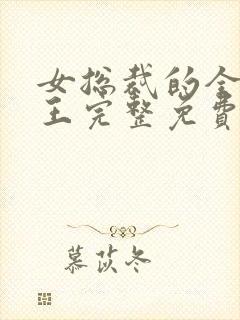 女总裁的全
王完整免費
慕苡冬